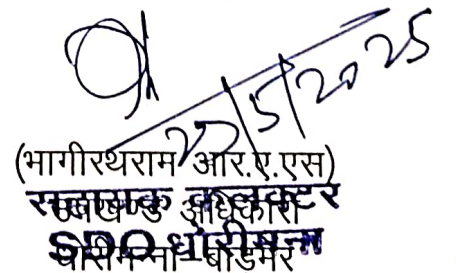 27/5/2025
(भागीरथराम आर.ए.एस)
सहायक कलक्टर
उपखण्ड अधिकारी
SDO धोरीमन्ना
धोरीमन्ना बाडमेर